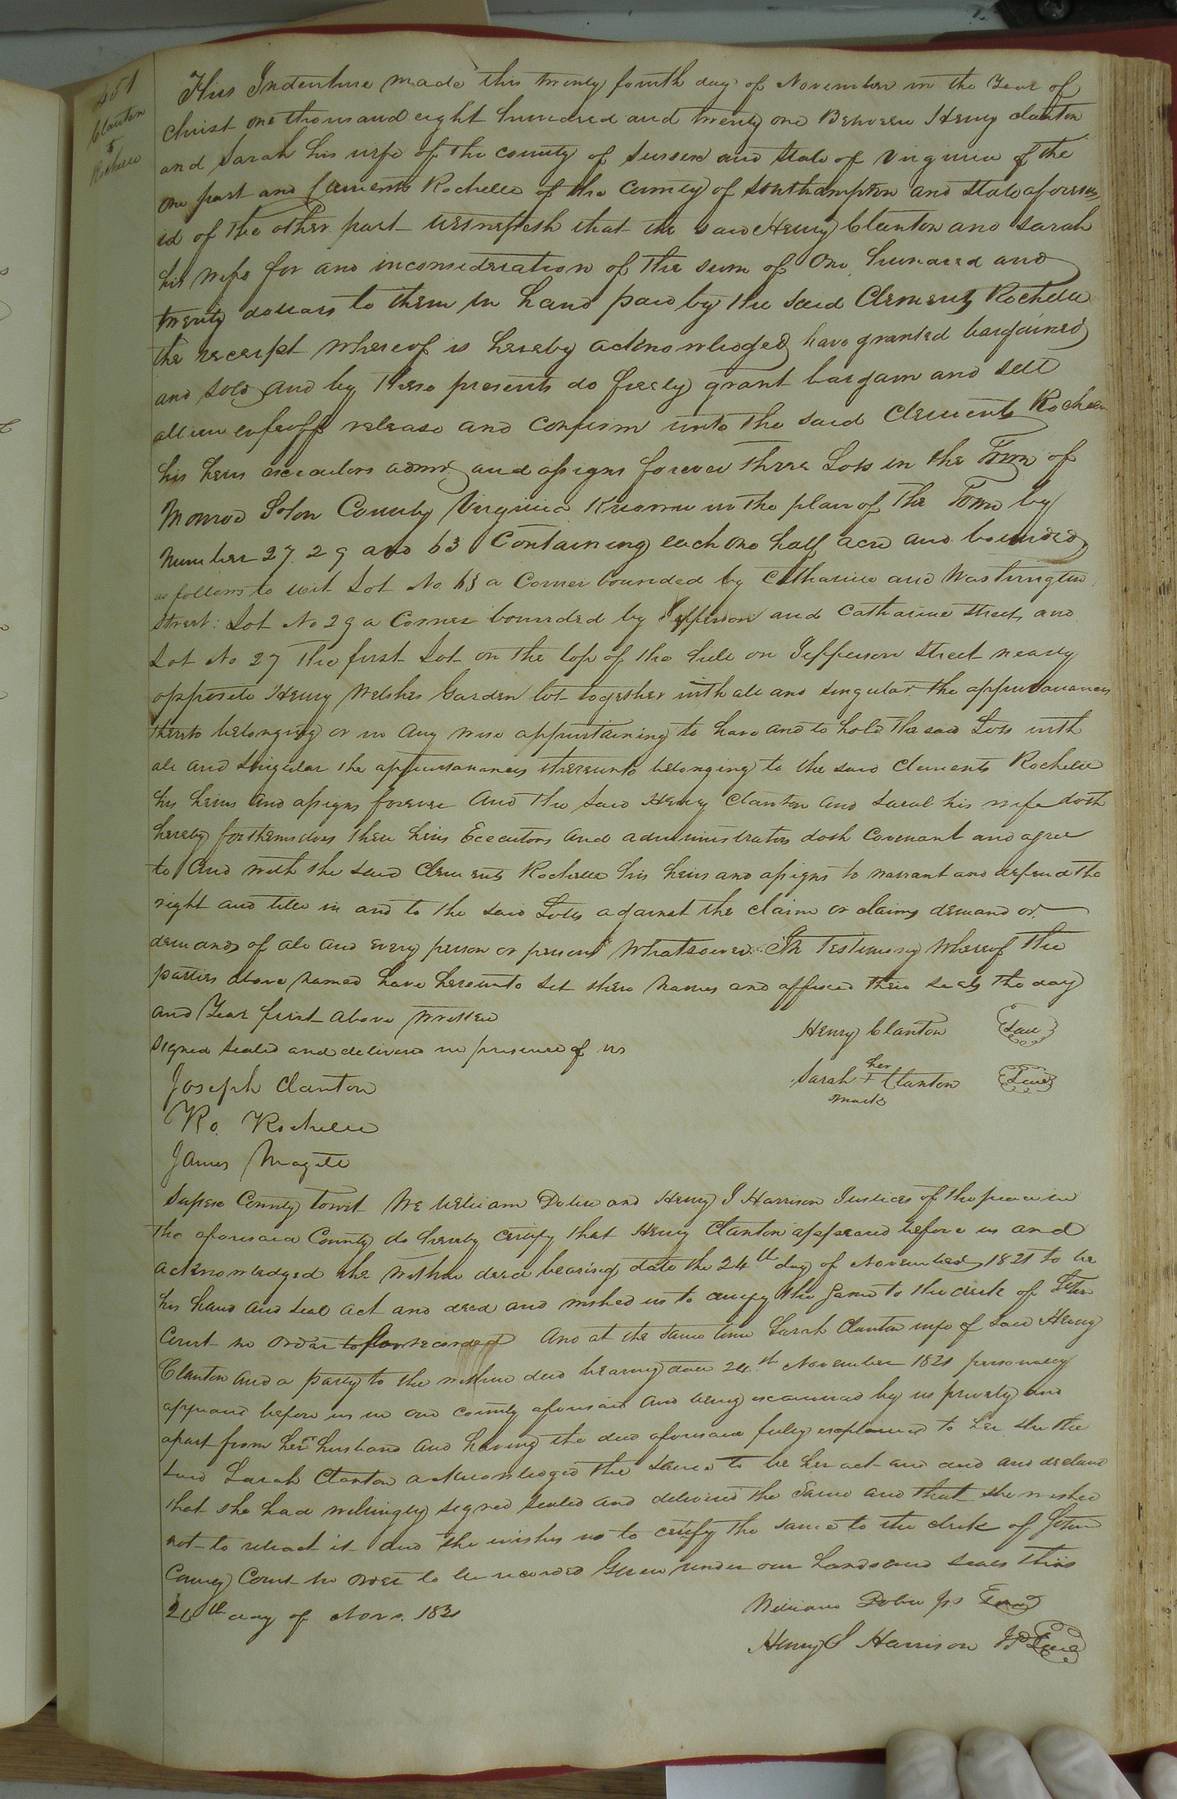 451
Clanton
to
Rochelle
This Indenture made this twenty fourth day of November in the Year of
Christ one thousand eight hundred and twenty one Between Henry Clanton
and Sarah his wife of the county of Sussex and State of Virginia of the
one part and Clements Rochelle of the County of Southampton and State aforesa
id of the other part Witnesseth that the said Henry Clanton and Sarah
his wife for and inconsideration of the sum of One hundred and
twenty dollars to them in hand paid by the said Clements Rochelle
the receipt whereof is hereby acknowledged have granted bargained
and sold and by these presents do freely grant bargain and sell
alien enfeoff release and confirm unto the said Clements Rochelle
his heirs executors admrs and assigns forever three Lots in the Town of
Monroe Soton County Virginia Known in the plan of the Town by
Number 27 29 and 63 Containing each one half acre and bounded
as follows to wit Lot No 63 a Corner bounded by Catharine and Washington
Street: Lot No 29 a Corner bounded by Jefferson and Catharine Street, and
Lot No 27 The first Lot on the top of the hill on Jefferson Street nearly
opposite Henry Welshes Garden lot together with all and singular the appurtanances
thereto belonging or in any wise appurtaining to have and to hold the said Lots with
all and singular the appurtanances thereunto belonging to the said Clements Rochelle
his heirs and assigns forever And the said Henry Clanton and Sarah his wife doth
hereby for themselves their heirs Executors and administrators doth Covenant and agree
to And with the said Clements Rochelle his heirs and assigns to warrant and defend the
right and title in and to the said Lotts against the claim or claims demand or
demands of all and every person or persons Whatsoever In Testimony Whereof the
parties above named have hereunto set there names and affixed their seals the day
and Year first above Written
Henry Clanton Seal
Signed sealed and delivered in presence of us
her
Sarah + Clanton Seal
mark
Joseph Clanton
Ro. Rochelle
James Magett
Sussex County towit We William Dobie and Henry J Harrison Justices of the peace in
the aforesaid County do hereby certify that Henry Clanton appeared before us and
acknowledged the within deed bearing date the 24th day of November 1821 to be
his hand and seal act and deed and wished us to certify the same to the clerk of Soton
Court in order to be recorded And at the same time Sarah Clanton wife of said Henry
Clanton and a party to the within deed bearing date 24th November 1821 personally
appeared before us in our county aforesaid and being examined by us privily and
apart from her husband and having the deed aforesaid fully explained to her she the
said Sarah Clanton acknowledged the same to be her act and deed and declared
that she had willingly signed sealed and delivered the same and that she wished
not to retract it and she wishes us to certify the same to the clerk of Soton
County Court in order to be recorded Given under our hands and seals this
24th day of Novr. 1821
William Dobie Jp Seal
Henry J Harrison JP Seal